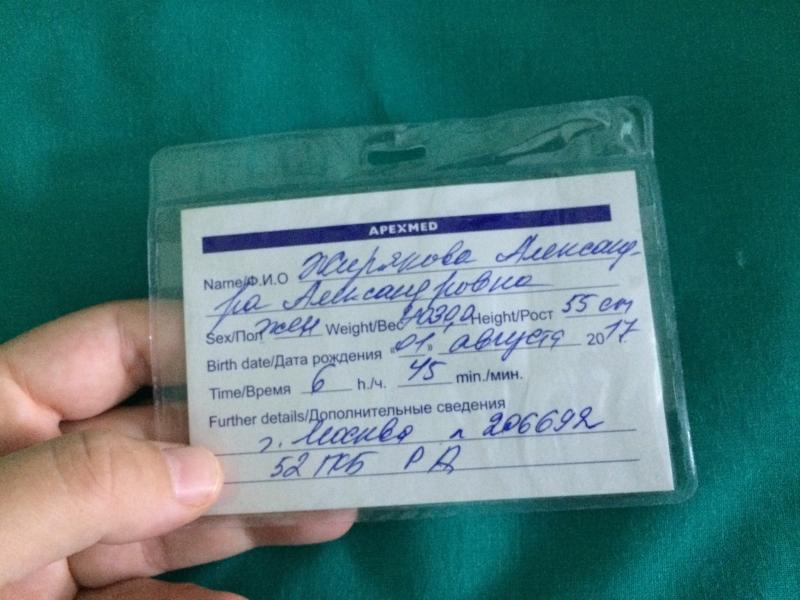 APEXMED
Name/Ф.И.О Жирякова Александ-
ра Александровна
Sex/Пол жен Weight/Вес 4030,0 Height/Рост 55 см
Birth date/Дата рождения «01» августа 2017
Time/Время 6 h./ч. 45 min./мин.
Further details/Дополнительные сведения
г. Москва л 206692
52 ГКБ Р Д